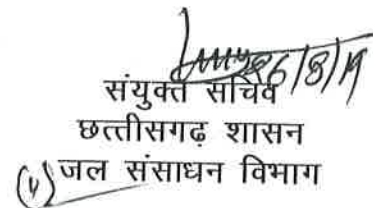 26/8/19
संयुक्त सचिव
छत्तीसगढ़ शासन
जल संसाधन विभाग